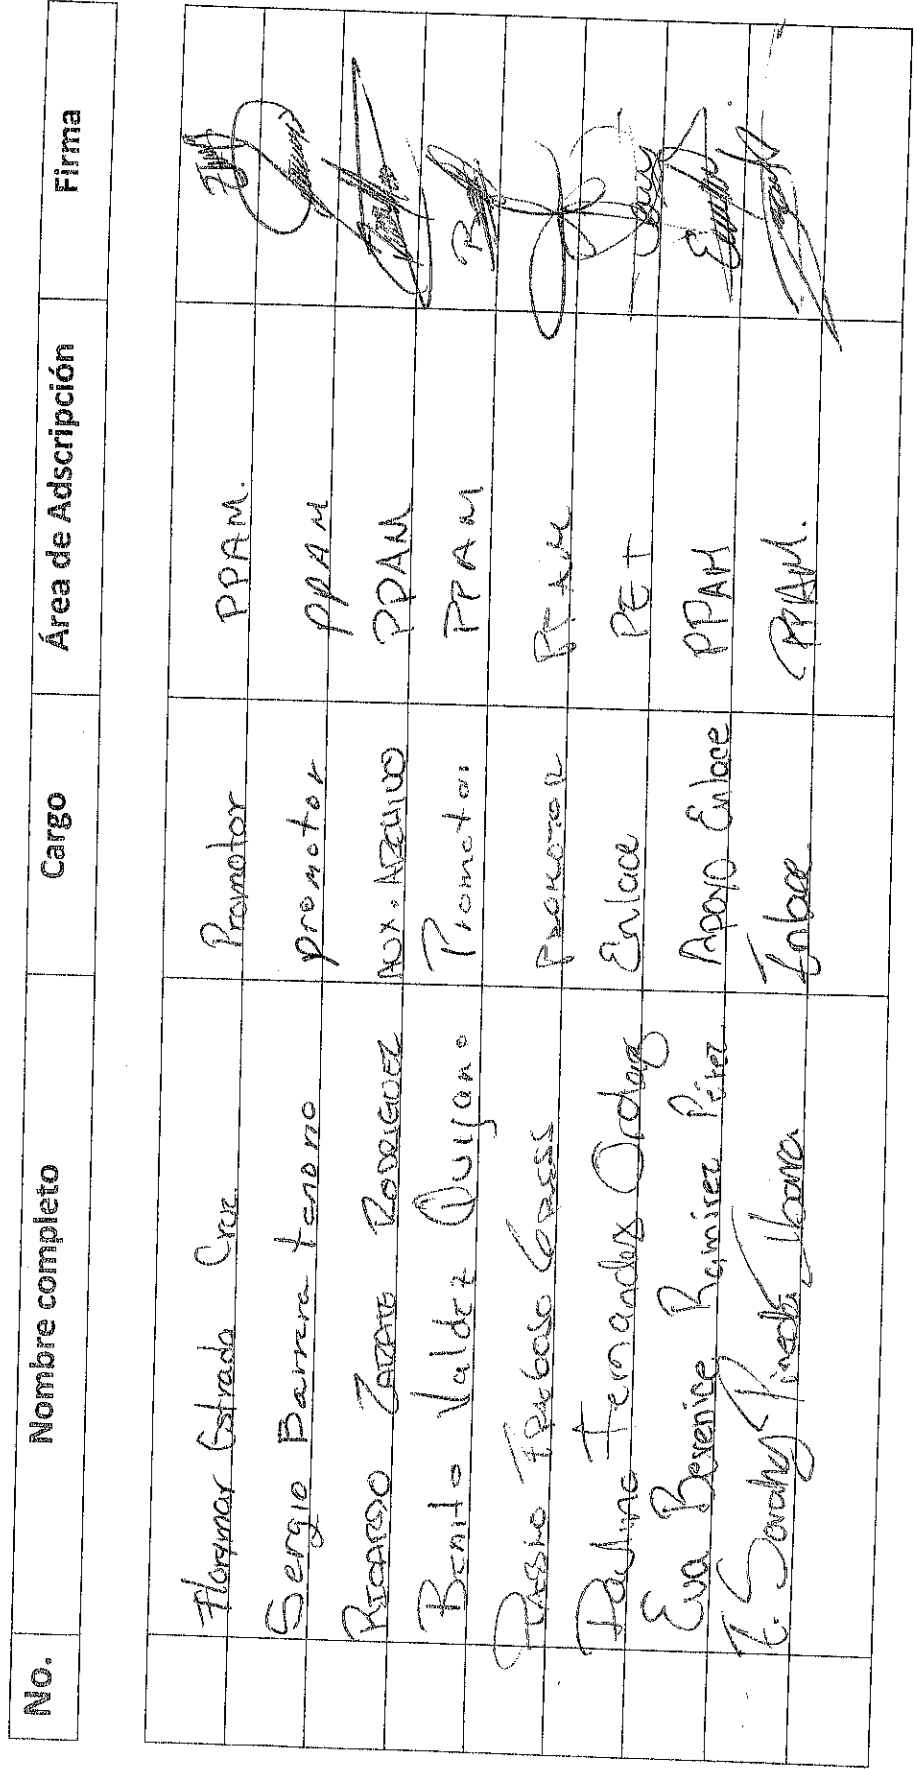 No. Nombre completo Cargo Área de Adscripción Firma
Floramar Estrada Cruz. Promotor PPAM.
Sergio Barrera tenorio promotor PPAM
RICARDO ZARATE RODRIGUEZ AUX. ARCHIVO PPAM
Benito Valdez Quijano Promotor PPAM
PROMOTOR PPAM
Paulino Fernandez Ordoñez Enlace PET
Eva Berenice Ramirez Pérez Apoyo Enlace PPAM
Sarahy Pineda Enlace PPAM.